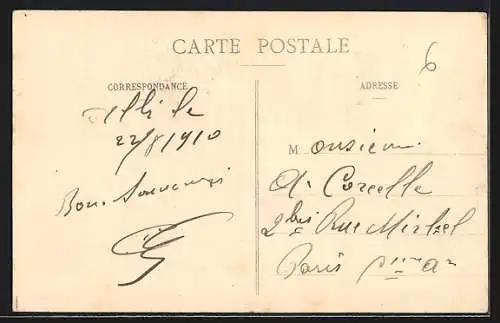 CARTE POSTALE
6
CORRESPONDANCE
ADRESSE
le
22/8/1910
Bon Souvenir
Monsieur
A. Corcelle
2bis Rue Mirbel
Paris